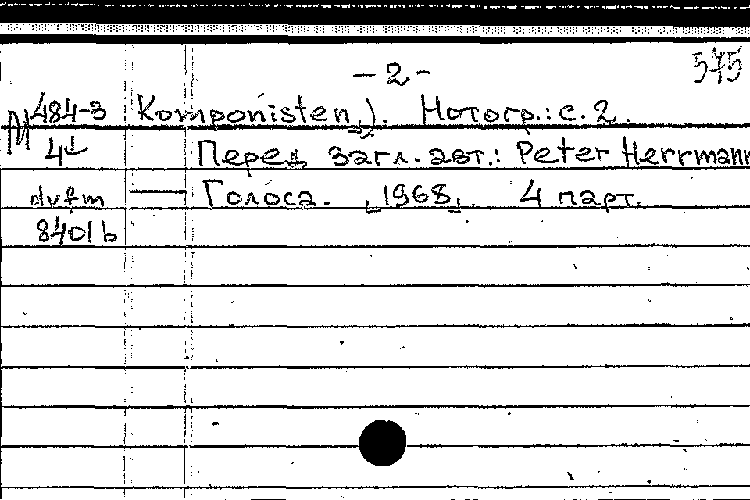 - 2 -
575
М 484-3 Komponisten⌟). Нотогр.: с. 2.
4
Перед загл. авт.: Peter Herrmann
dvfm — Голоса. ⌞1968⌟. 4 парт.
8401b